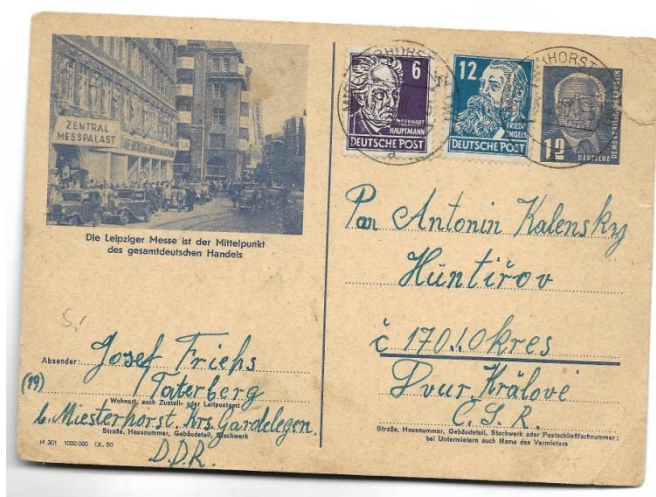 ZENTRAL
MESSPALAST
Die Leipziger Messe ist der Mittelpunkt
des gesamtdeutschen Handels
Absender: Josef Friehs
(19) Taterberg
Wohnort, auch Zustell- oder Leitpostamt
b. Miesterhorst. Krs. Gardelegen.
Straße, Hausnummer, Gebäudeteil, Stockwerk
D.D.R.
H 301 1000 000 IX. 50
6
GERHART
HAUPTMANN
DEUTSCHE POST
12
FRIEDR.
ENGELS
DEUTSCHE POST
12
DEUTSCHE
DEMOKRATISCHE REPUBLIK
Pan Antonin Kalensky
Hüntířov
č 170. Okres
Dvur Králové
Č.S.R.
Straße, Hausnummer, Gebäudeteil, Stockwerk oder Postschließfachnummer;
bei Untermietern auch Name des Vermieters